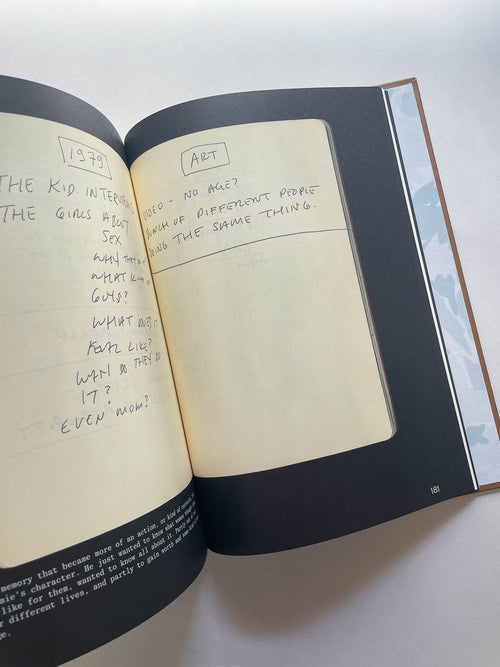 1979
THE KID INTERVIEWS
THE GIRLS ABOUT
SEX
WHY THEY DO
WHAT KIND OF
GUYS?
WHAT DOES IT
FEEL LIKE?
WHY DO THEY DO
IT?
EVEN MOM?
memory that became more of an action, or kind of
mie's character. He just wanted to know what
like for them, wanted to know all about it. Partly
r different lives, and partly to gain worth and
ge.
ART
VIDEO - NO AGE?
BUNCH OF DIFFERENT PEOPLE
DOING THE SAME THING.
181